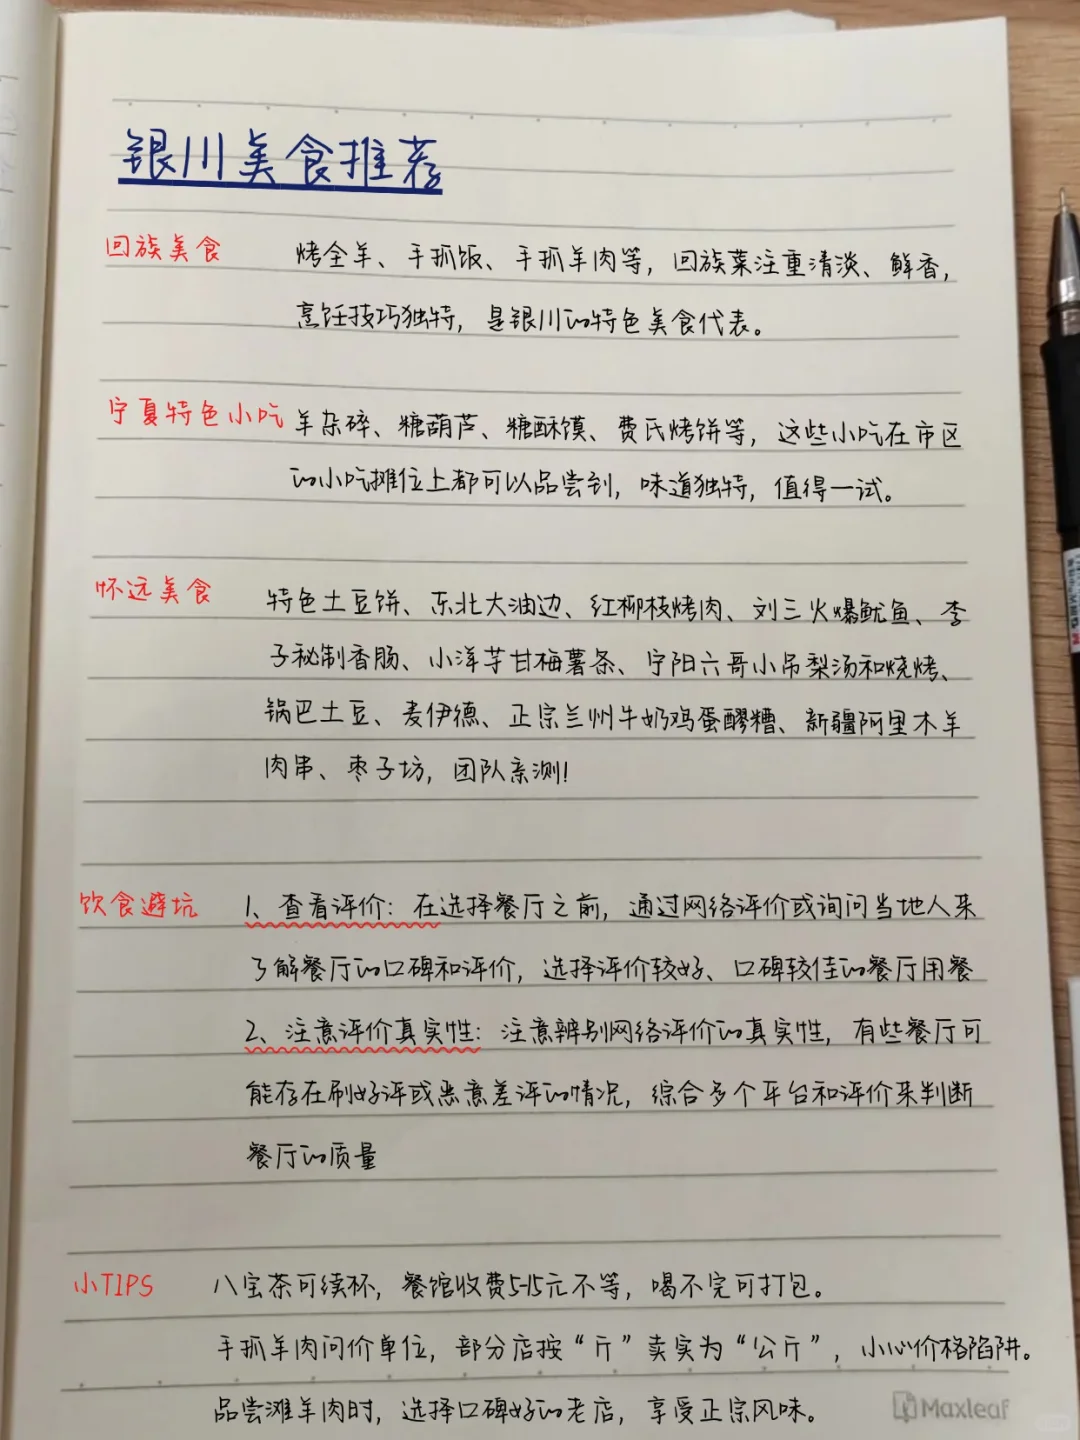 银川美食推荐
回族美食 烤全羊、手抓饭、手抓羊肉等，回族菜注重清淡、鲜香，
烹饪技巧独特，是银川的特色美食代表。
宁夏特色小吃 羊杂碎、糖葫芦、糖酥馍、费氏烤饼等，这些小吃在市区
的小吃摊位上都可以品尝到，味道独特，值得一试。
怀远美食 特色土豆饼、东北大油边、红柳枝烤肉、刘三火爆鱿鱼、李
子秘制香肠、小洋芋甘梅薯条、宁阳六哥小吊梨汤和烧烤、
锅巴土豆、麦伊德、正宗兰州牛奶鸡蛋醪糟、新疆阿里木羊
肉串、枣子坊，团队亲测！
饮食避坑 1、查看评价：在选择餐厅之前，通过网络评价或询问当地人来
了解餐厅的口碑和评价，选择评价较好、口碑较佳的餐厅用餐
2、注意评价真实性：注意辨别网络评价的真实性，有些餐厅可
能存在刷好评或恶意差评的情况，综合多个平台和评价来判断
餐厅的质量
小TIPS 八宝茶可续杯，餐馆收费5-15元不等，喝不完可打包。
手抓羊肉问价单位，部分店按“斤”卖实为“公斤”，小心价格陷阱。
品尝滩羊肉时，选择口碑好的老店，享受正宗风味。
Maxleaf